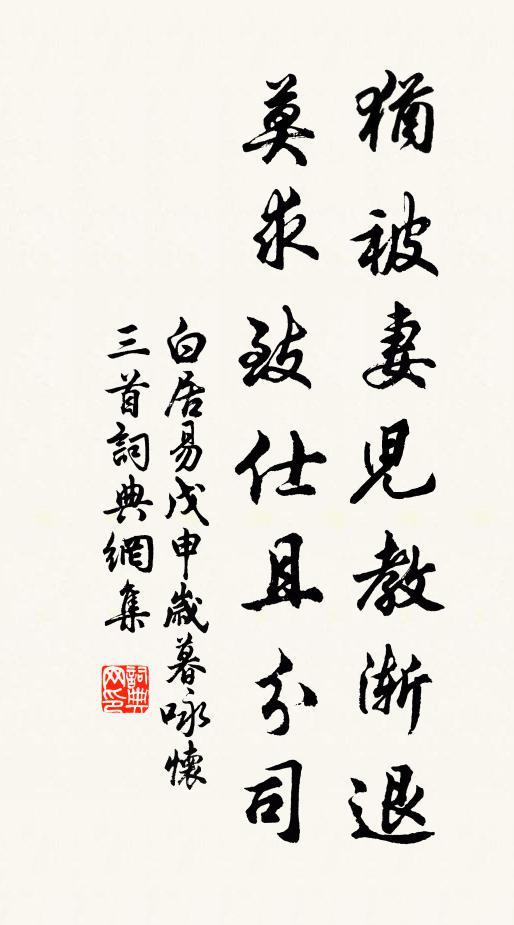 猶被妻児教漸退
莫求致仕且分司
白居易戊申歲暮咏懷
三首詞典網集
詞典
网印